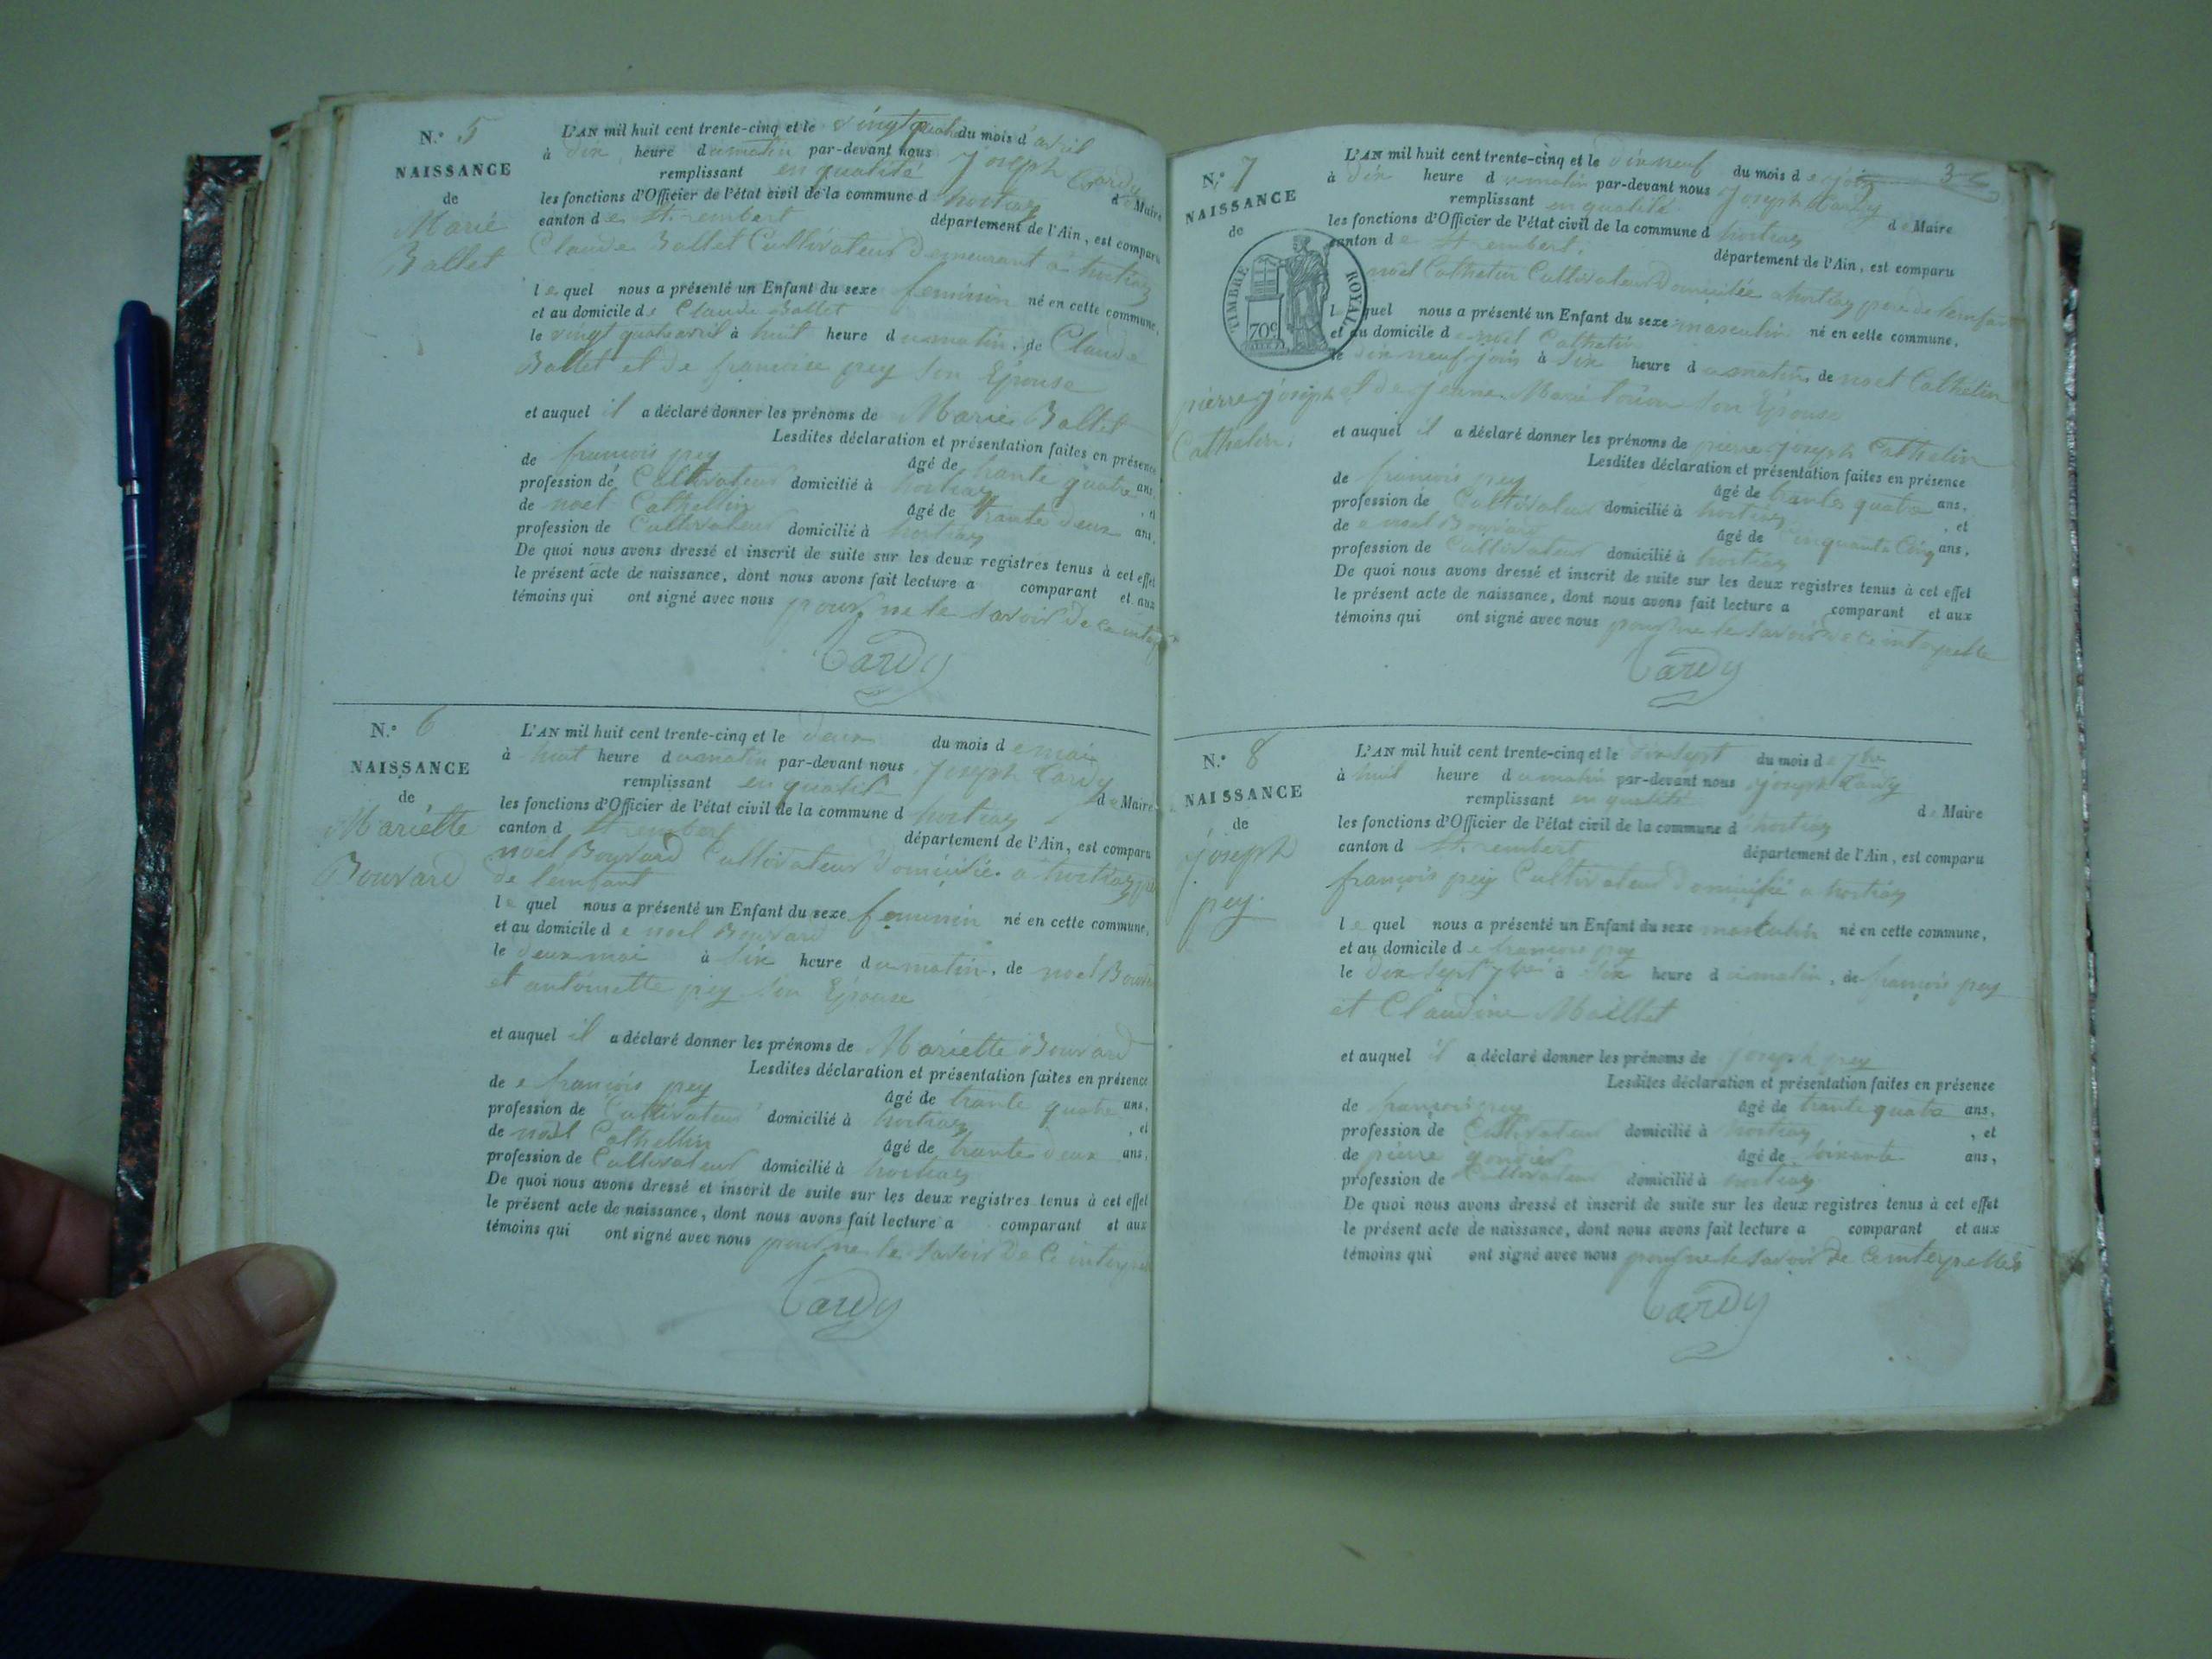 N.° 5
NAISSANCE
de
Marie
Ballet
L'AN mil huit cent trente-cinq et le vingt quatre du mois d'avril
à dix heure du matin par-devant nous joseph Tardy
remplissant en qualité de Maire
les fonctions d'Officier de l'état civil de la commune d hortiaz
canton de St rembert département de l'Ain, est comparu
Claude Ballet Cultivateur Demeurant à hortiaz
le quel nous a présenté un Enfant du sexe feminin né en cette commune,
et au domicile de Claude Ballet
le vingt quatre avril à huit heure du matin, de Claude
Ballet et de francoise pey son Epouse
et auquel il a déclaré donner les prénoms de Marie Ballet
Lesdites déclaration et présentation faites en présence
de francois pey âgé de trante quatre ans,
profession de Cultivateur domicilié à hortiaz, et
de noel Cathellin âgé de trante deux ans,
profession de Cultivateur domicilié à hortiaz
De quoi nous avons dressé et inscrit de suite sur les deux registres tenus à cet effet
le présent acte de naissance, dont nous avons fait lecture a comparant et aux
témoins qui ont signé avec nous pour ne le savoir De ce
Tardy
N.° 6
NAISSANCE
de
Mariette
Bouvard
L'AN mil huit cent trente-cinq et le deux du mois de mai
à huit heure du matin par-devant nous Joseph Tardy
remplissant en qualité de Maire
les fonctions d'Officier de l'état civil de la commune d hortiaz
canton d St rembert département de l'Ain, est comparu
noel Bouvard Cultivateur Domicilié a hortiaz
De l'enfant
le quel nous a présenté un Enfant du sexe feminin né en cette commune,
et au domicile de noel Bouvard
le deux mai à six heure du matin, de noel
et antoinette pey son Epouse
et auquel il a déclaré donner les prénoms de Mariette Bouvard
Lesdites déclaration et présentation faites en présence
de francois pey âgé de trante quatre ans,
profession de Cultivateur domicilié à hortiaz, et
de noël Cathellin âgé de trante deux ans,
profession de Cultivateur domicilié à hortiaz
De quoi nous avons dressé et inscrit de suite sur les deux registres tenus à cet effet
le présent acte de naissance, dont nous avons fait lecture a comparant et aux
témoins qui ont signé avec nous pour ne le savoir De ce
Tardy
36
N.° 7
NAISSANCE
de
TIMBRE ROYAL
70c
pierre joseph
Cathelin
L'AN mil huit cent trente-cinq et le dix neuf du mois de join
à dix heure du matin par-devant nous Joseph Tardy
remplissant en qualité de Maire
les fonctions d'Officier de l'état civil de la commune d hortiaz
canton de St rembert département de l'Ain, est comparu
noel Cathelin Cultivateur Domicilie a hortiaz pere de l'enfant
le quel nous a présenté un Enfant du sexe masculin né en cette commune,
et au domicile de noel Cathelin
le dix neuf join à six heure du matin, de noel Cathelin
et de jenne Marie son Epouse
et auquel il a déclaré donner les prénoms de pierre joseph Cathelin
Lesdites déclaration et présentation faites en présence
de francois pey âgé de trante quatre ans,
profession de Cultivateur domicilié à hortiaz, et
de noel Bouvard âgé de cinquante Cinq ans,
profession de Cultivateur domicilié à hortiaz
De quoi nous avons dressé et inscrit de suite sur les deux registres tenus à cet effet
le présent acte de naissance, dont nous avons fait lecture a comparant et aux
témoins qui ont signé avec nous pour ne le savoir de ce interpellé
Tardy
N.° 8
NAISSANCE
de
joseph
pey
L'AN mil huit cent trente-cinq et le dix sept du mois de 7bre
à huit heure du matin par-devant nous joseph Tardy
remplissant en qualité de Maire
les fonctions d'Officier de l'état civil de la commune d hortiaz
canton d St rembert département de l'Ain, est comparu
françois pey Cultivateur Domicilié a hortiaz
le quel nous a présenté un Enfant du sexe masculin né en cette commune,
et au domicile de francois pey
le dix sept 7bre à six heure du matin, de françois pey
et Claudine Maillet
et auquel il a déclaré donner les prénoms de joseph pey
Lesdites déclaration et présentation faites en présence
de francois pey âgé de trante quatre ans,
profession de Cultivateur domicilié à hortiaz, et
de pierre âgé de soixante ans,
profession de Cultivateur domicilié à hortiaz
De quoi nous avons dressé et inscrit de suite sur les deux registres tenus à cet effet
le présent acte de naissance, dont nous avons fait lecture a comparant et aux
témoins qui ont signé avec nous pour ne le savoir De ce interpellés
Tardy